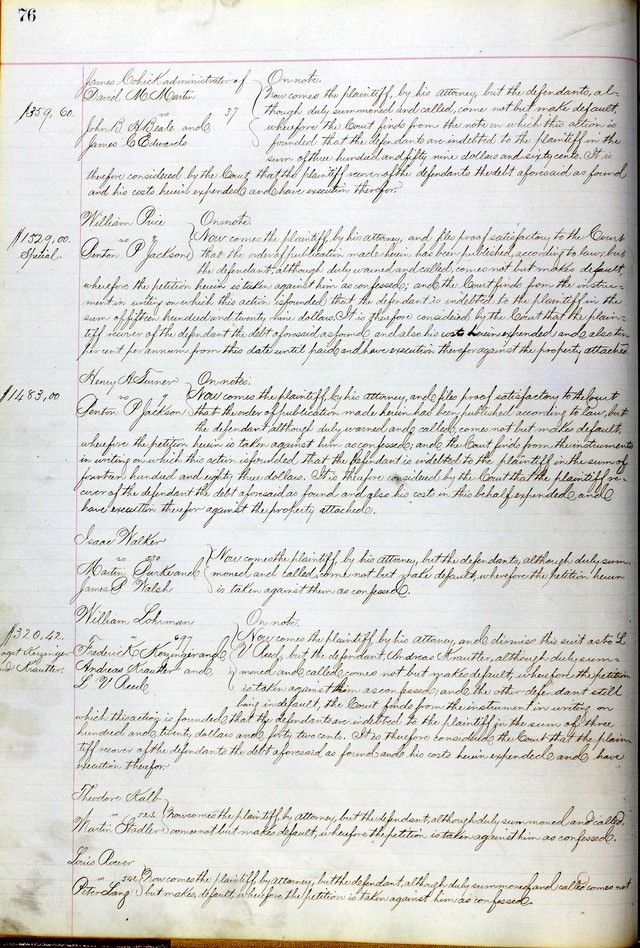 76
James Cohick administrator of
David M. Martin
vs 37
John B. H. Beale and
James C Edwards
On note.
$359,60.
Now comes the plaintiff, by his attorney, but the defendants, al-
though duly summoned and called, come not but make default
wherefore the Court finds from the note on which this action is
founded that the defendants are indebted to the plaintiff in the
sum of three hundred and fifty nine dollars and sixty cents. It is
therefore considered by the Court that the plaintiff recover of the defendants the debt aforesaid as found
and his costs herein expended and have execution therefor.
William Price
vs
Denton P Jackson
On note.
$1529,00.
Special.
Now comes the plaintiff by his attorney, and files proof satisfactory to the Court
that the order of publication made herein has been published, according to law, but
the defendant, although duly warned and called, comes not but makes default
wherefore the petition herein is taken against him as confessed; and the Court finds from the instru-
ment in writing on which this action is founded that the defendant is indebted to the plaintiff in the
sum of fifteen hundred and twenty nine dollars. It is therefore considered by the Court that the plain-
tiff recover of the defendant the debt aforesaid as found and also his costs herein expended and also ten
per cent per annum from this date until paid and have execution therefor against the property attached.
Henry A Turner
vs
Denton P Jackson
On notes.
$1483,00
Now comes the plaintiff, by his attorney, and files proof satisfactory to the Court
that the order of publication made herein has been published according to law, but
the defendant although duly warned and called, comes not but make default,
wherefore the petition herein is taken against him as confessed; and the Court finds from the instruments
in writing on which this action is founded, that the defendant is indebted to the plaintiff in the sum of
fourteen hundred and eighty three dollars. It is therefore considered by the Court that the plaintiff re-
cover of the defendant the debt aforesaid as found and also his costs in this behalf expended and
have execution therefor against the property attached.
Isaac Walker
vs
Martin Burke and
James P Walsh
Now comes the plaintiff, by his attorney, but the defendants, although duly sum-
moned and called, come not but make default, wherefore the petition herein
is taken against them as confessed.
William Lohrman
vs 697
Frederick Keyinger and
Andreas Krautter and
L V Reech
On note.
$320,42.
agst Keyinger
and Krautter.
Now comes the plaintiff by his attorney, and dismiss this suit as to L
V Reech, but the defendant, Andreas Krautter, although duly sum-
moned and called comes not but make default, wherefore the petition
is taken against them as confessed; and the other defendant still
being in default, the Court finds from the instrument in writing on
which this action is founded that the defendants are indebted to the plaintiff in the sum of three
hundred and twenty dollars and forty two cents. It is therefore considered the Court that the plain-
tiff recover of the defendants the debt aforesaid as found and his costs herein expended and have
execution therefor.
Theodore Kalb
vs
Martin Stadler
Now comes the plaintiff, by attorney, but the defendant, although duly summoned and called,
comes not but make default, wherefore the petition is taken against him as confessed.
Louis
vs 542
Peter Lang
Now comes the plaintiff by attorney, but the defendant, although duly summoned and called comes not
but makes default, wherefore the petition is taken against him as confessed.